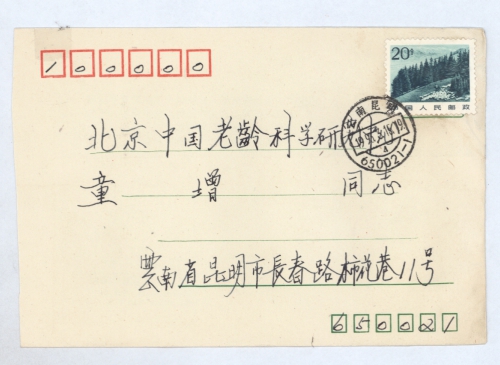 100000
20分
中国人民邮政
云南昆明
650021-1
北京中国老齡科学研
童增 同志
雲南省昆明市長春路柿花巷11号
650021